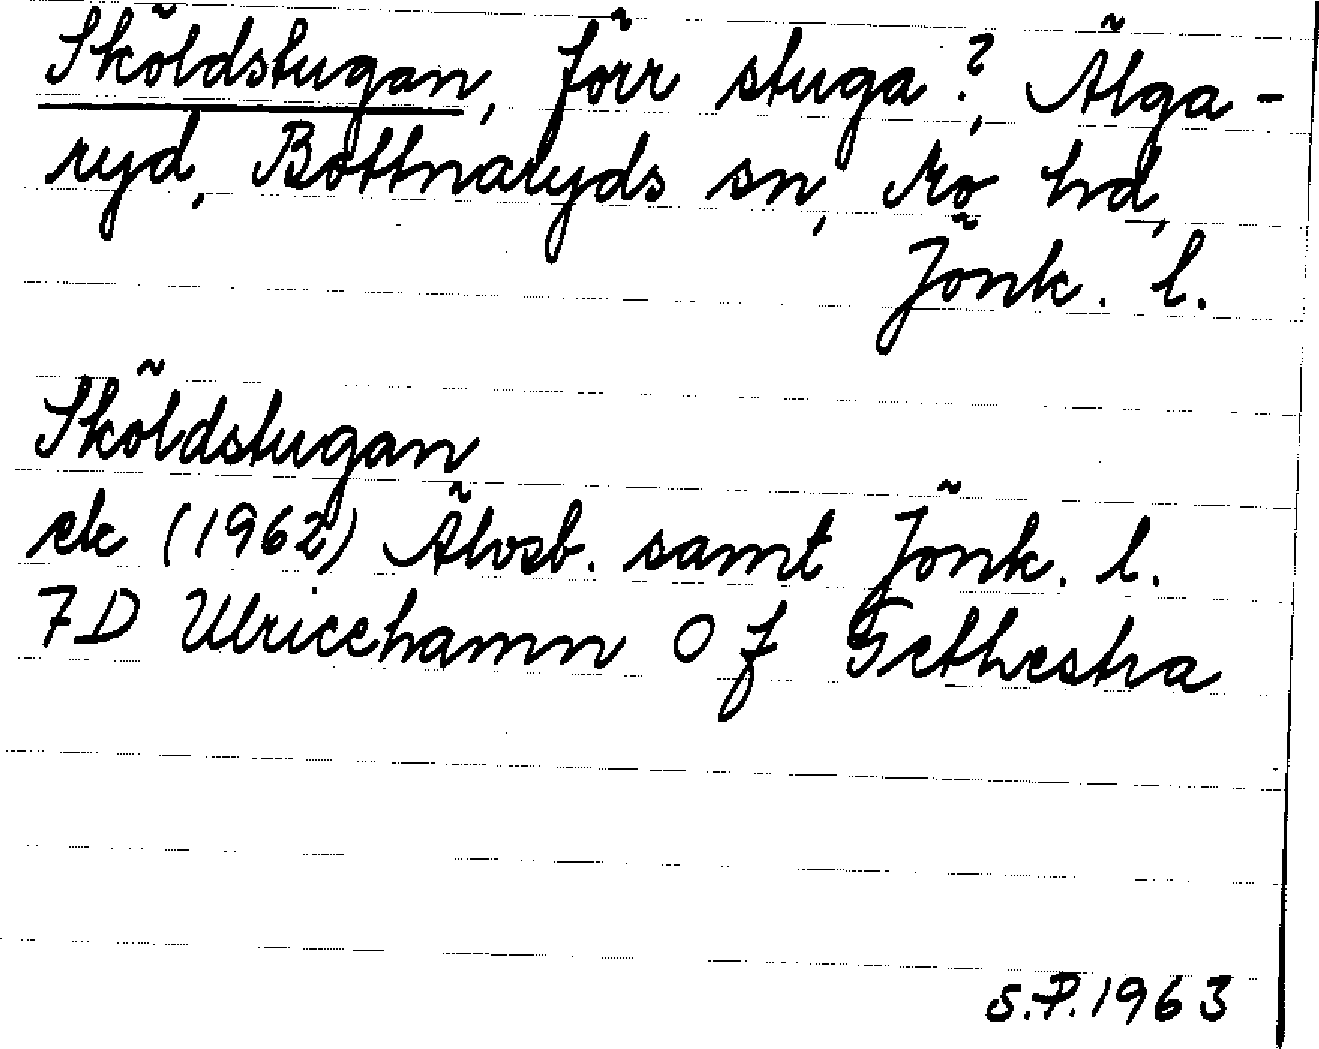 Sköldstugan, förr stuga?, Älga-
ryd, Bottnaryds sn, Mo hd,
Jönk. l.
Sköldstugan
ek (1962) Älvsb. samt Jönk. l.
7D Ulricehamn 0 f Gethestra
S.P. 1963